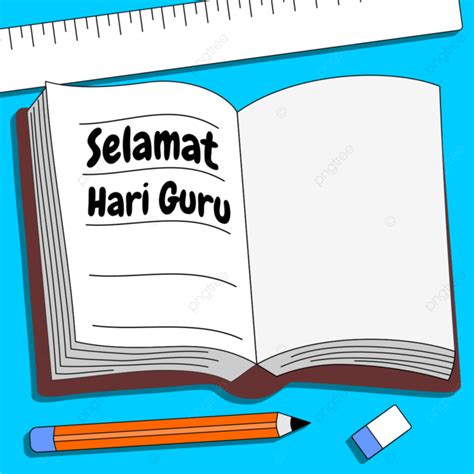 Selamat
Hari Guru
pngtree
pngtree
pngtree
pngtree